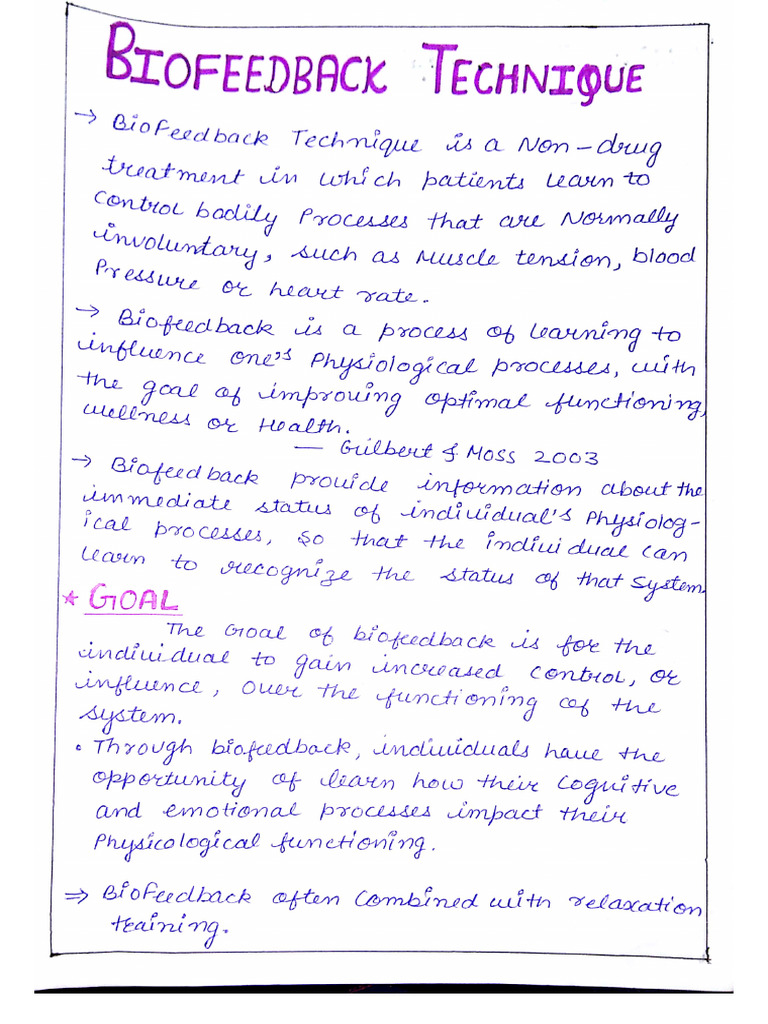 BIOFEEDBACK TECHNIQUE
→ BioFeedback Technique is a Non-drug
treatment in which patients learn to
control bodily Processes that are Normally
involuntary, such as Muscle tension, blood
Pressure or heart rate.
→ Biofeedback is a process of learning to
influence one's Physiological processes, with
the goal of improving optimal functioning,
wellness or Health.
— Guilbert & Moss 2003
→ Biofeedback provide information about the
immediate status of individual's Physiolog-
ical processes, so that the individual can
learn to recognize the status of that system.
* GOAL
The Goal of biofeedback is for the
individual to gain increased control, or
influence, over the functioning of the
system.
• Through biofeedback, individuals have the
opportunity of learn how their cognitive
and emotional processes impact their
Physicological functioning.
⇒ BioFeedback often combined with relaxation
training.